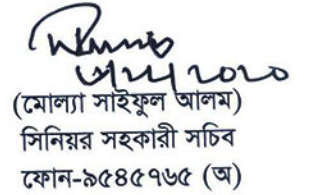 (মোল্যা সাইফুল আলম)
সিনিয়র সহকারী সচিব
ফোন-৯৫৪৫৭৬৫ (অ)